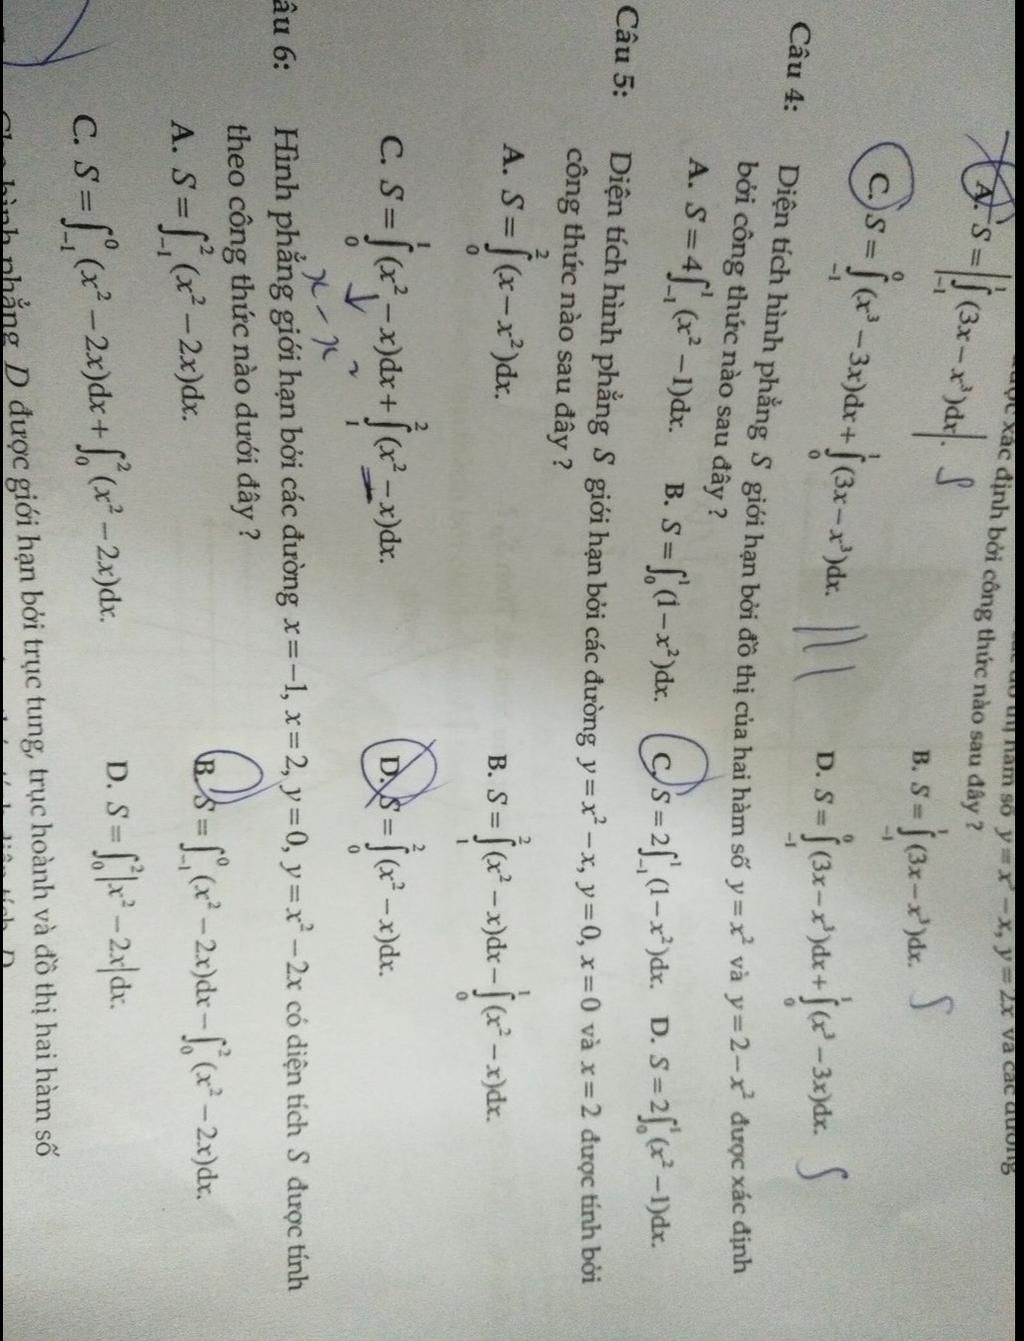 xác định bởi công thức nào sau đây ?
A. S = |∫₋₁¹ (3x − x³)dx|. B. S = ∫₋₁¹ (3x − x³)dx.
C. S = ∫₋₁⁰ (x³ − 3x)dx + ∫₀¹ (3x − x³)dx. D. S = ∫₋₁⁰ (3x − x³)dx + ∫₀¹ (x³ − 3x)dx.
Câu 4: Diện tích hình phẳng S giới hạn bởi đồ thị của hai hàm số y = x² và y = 2 − x² được xác định
bởi công thức nào sau đây ?
A. S = 4∫₋₁¹ (x² − 1)dx. B. S = ∫₀¹ (1 − x²)dx. C. S = 2∫₋₁¹ (1 − x²)dx. D. S = 2∫₀¹ (x² − 1)dx.
Câu 5: Diện tích hình phẳng S giới hạn bởi các đường y = x² − x, y = 0, x = 0 và x = 2 được tính bởi
công thức nào sau đây ?
A. S = ∫₀² (x − x²)dx. B. S = ∫₁² (x² − x)dx − ∫₀¹ (x² − x)dx.
C. S = ∫₀¹ (x² − x)dx + ∫₁² (x² − x)dx. D. S = ∫₀² (x² − x)dx.
x - x
âu 6: Hình phẳng giới hạn bởi các đường x = −1, x = 2, y = 0, y = x² − 2x có diện tích S được tính
theo công thức nào dưới đây ?
A. S = ∫₋₁² (x² − 2x)dx. B. S = ∫₋₁⁰ (x² − 2x)dx − ∫₀² (x² − 2x)dx.
C. S = ∫₋₁⁰ (x² − 2x)dx + ∫₀² (x² − 2x)dx. D. S = ∫₀² |x² − 2x| dx.
hình phẳng D được giới hạn bởi trục tung, trục hoành và đồ thị hai hàm số